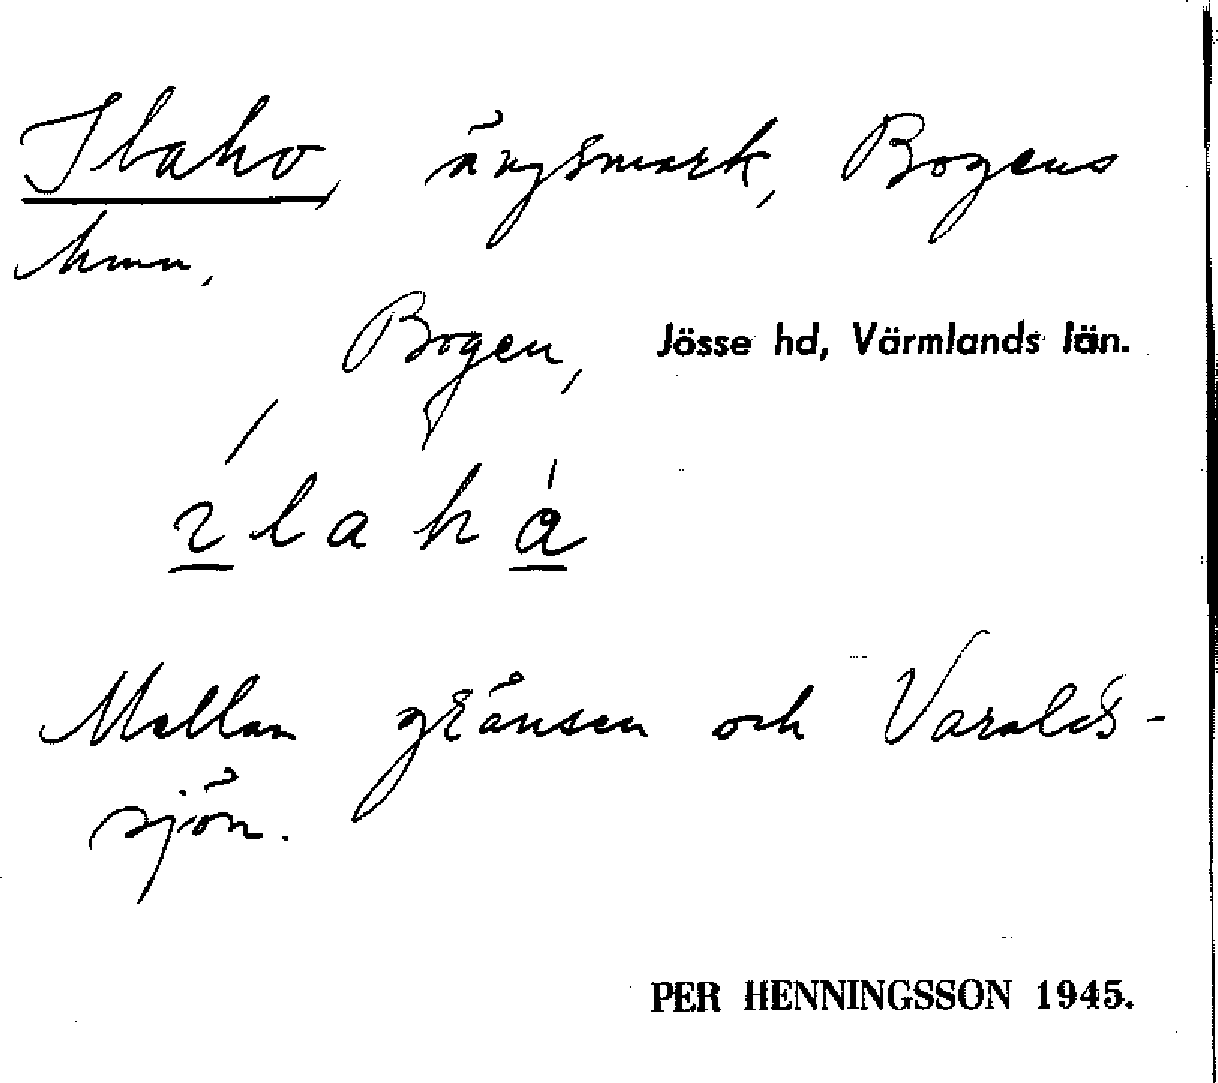 Ilaho, ängsmark, Bogens
hmn,
Bogen, Jösse hd, Värmlands län.
ı́lahà
Mellan gränsen och Varalds-
sjön.
PER HENNINGSSON 1945.